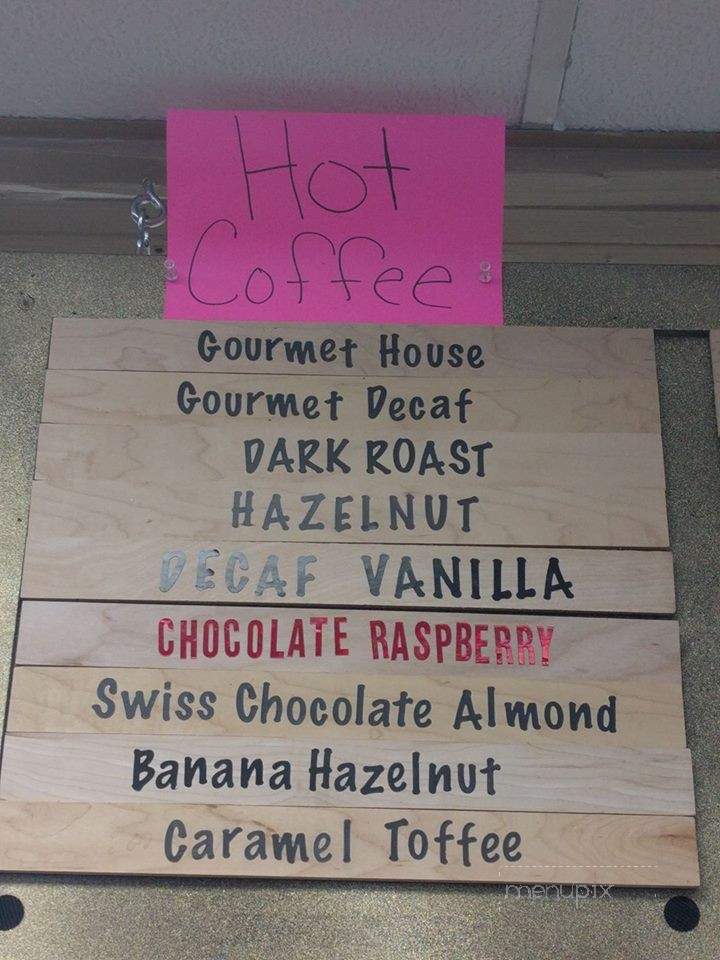 Hot
Coffee
Gourmet House
Gourmet Decaf
DARK ROAST
HAZELNUT
DECAF VANILLA
CHOCOLATE RASPBERRY
Swiss Chocolate Almond
Banana Hazelnut
Caramel Toffee
menupix